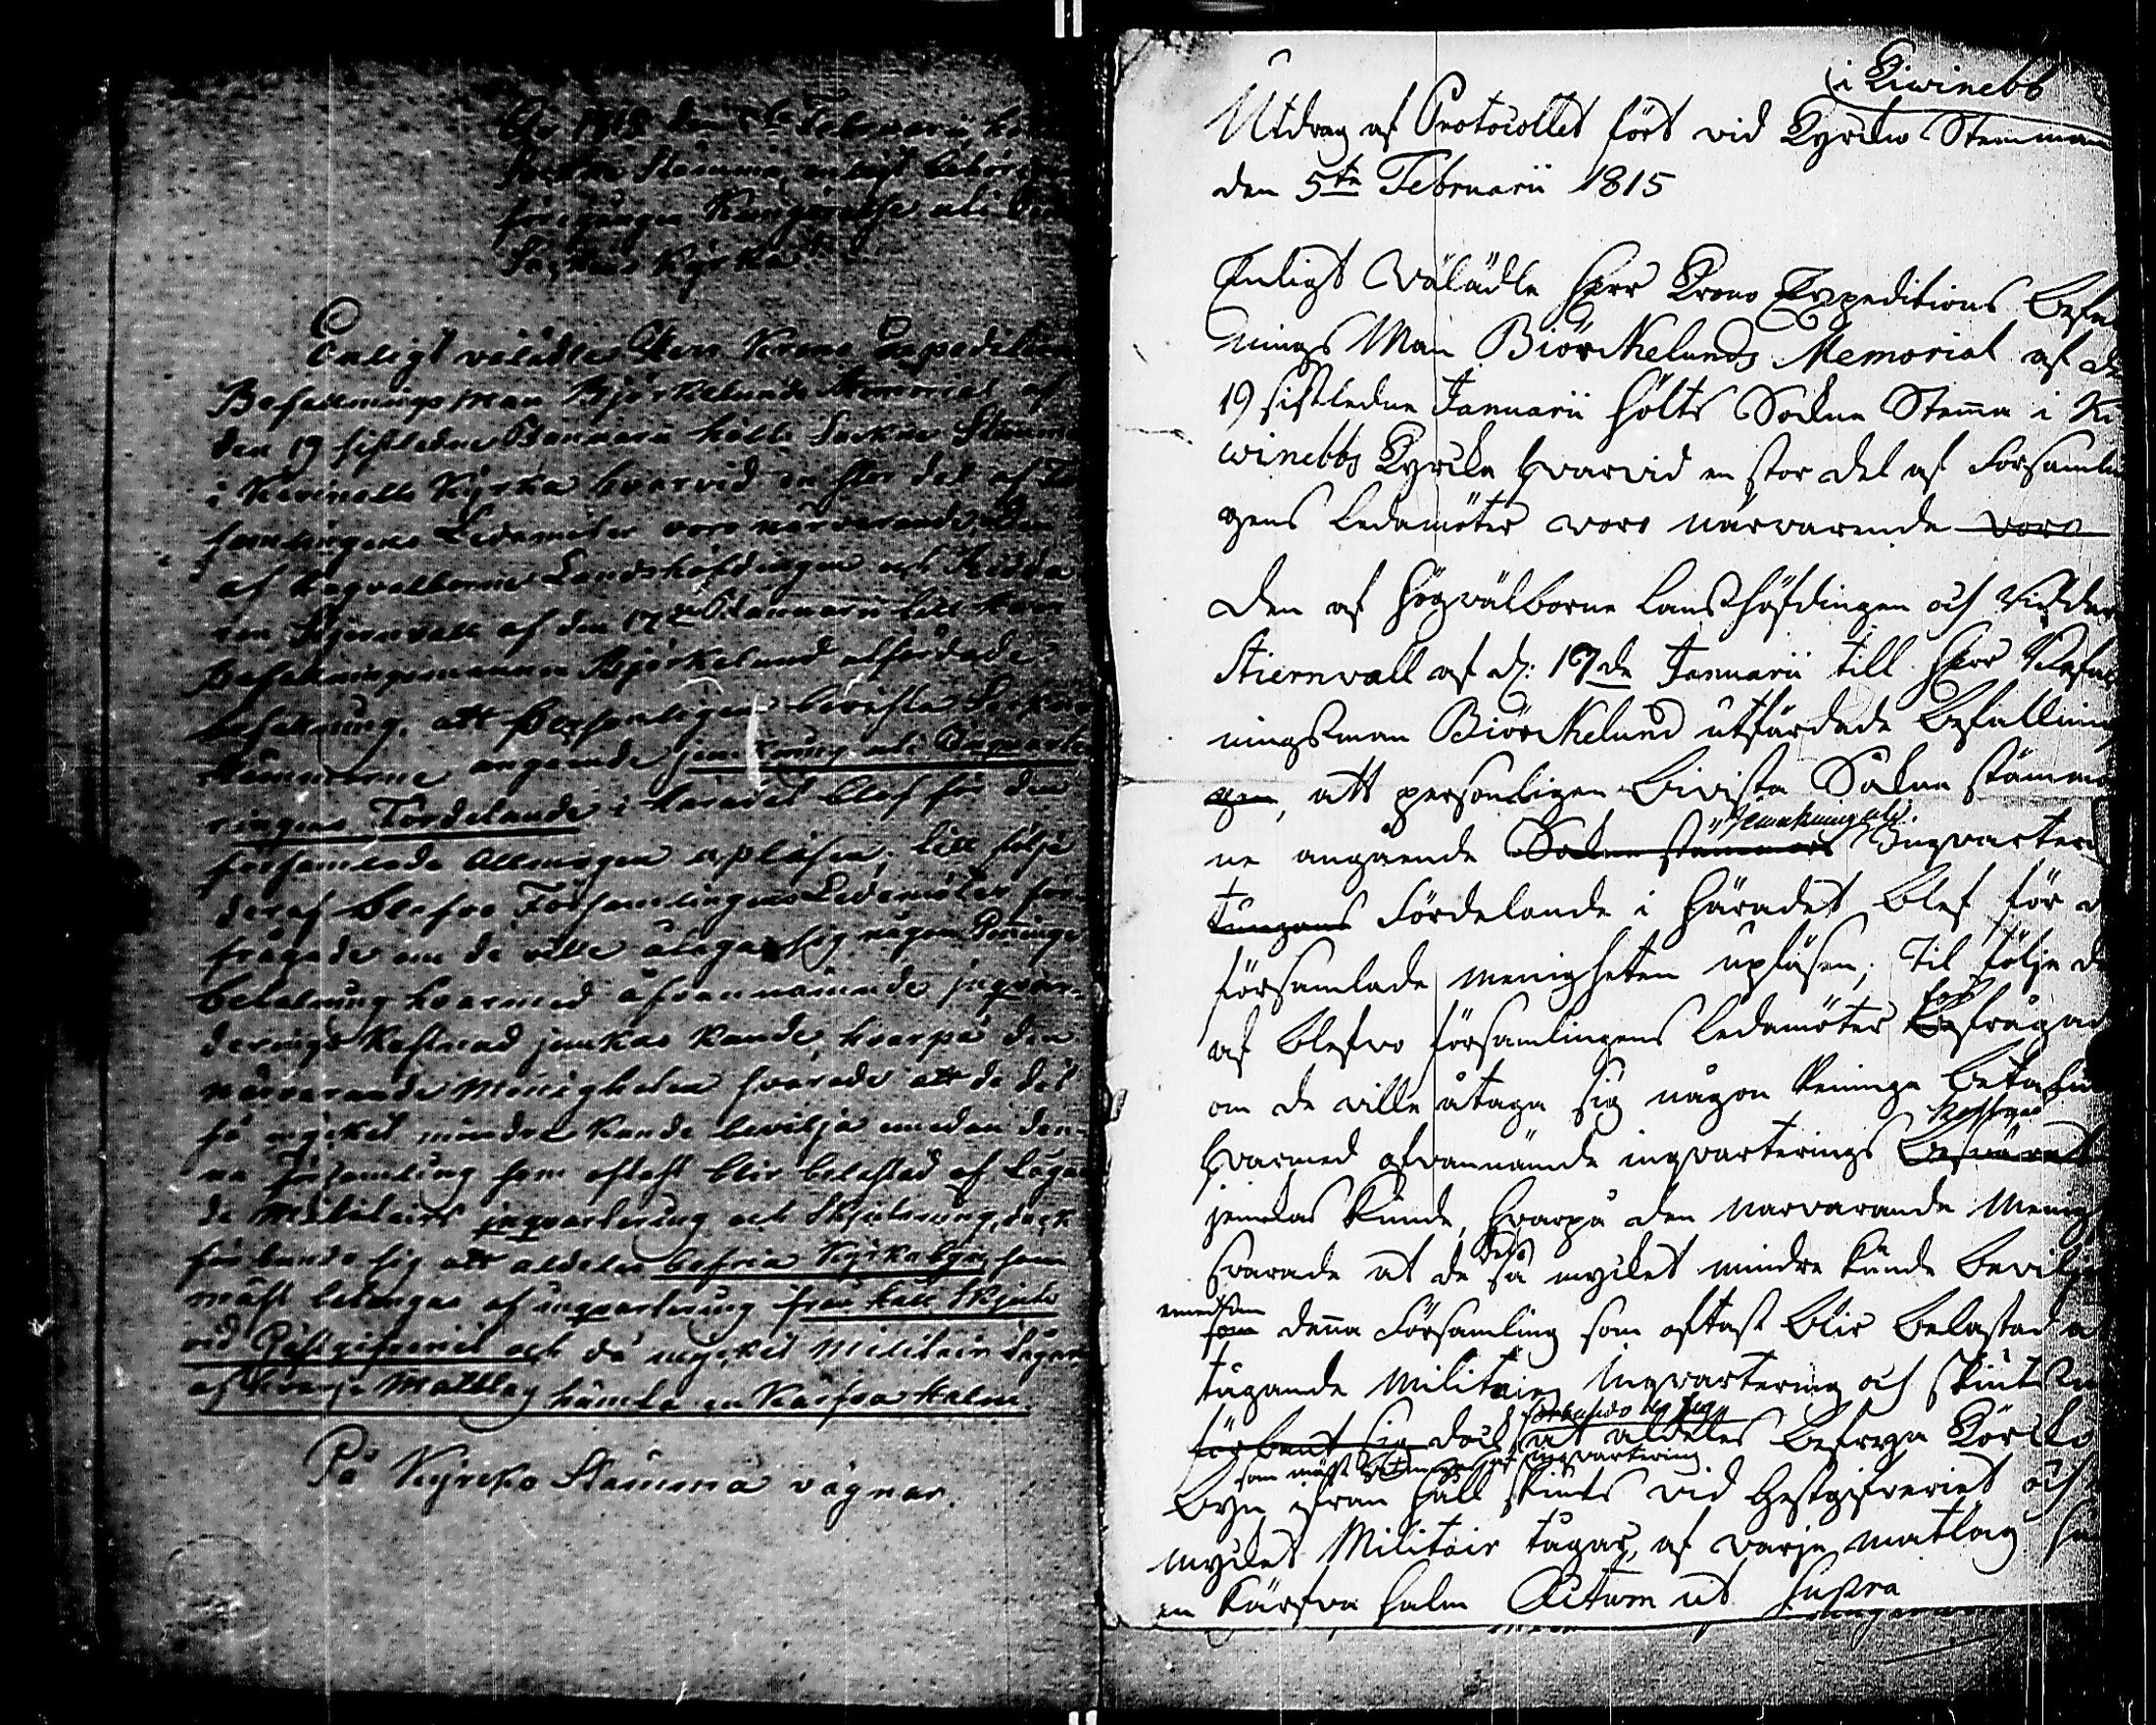 År 1815 den 5te Februarii
Sockne Stämma, enligt behör
föregången Kungörelse uti
Sockens Kyrka
Enligt välädle Herr Krono Expeditions
Befallnings Man Björkelunds Memorial af
den 19 sistledne Januarii hölts Sockne Stämma
i Kivinebb Kyrka hvarvid en stor del af För
samlingens Ledamöter voro närvarande, den
af Högvälborne Landshöfdingen och Ridda
ren Stjernvall af den 17de Januarii till Herr
Befallningsmannen Björkelund utfärdade
befallning, att personligen bivista Sockne
stämmorne angående jemkning uti Inqvarte
ringens Fördelande i häradet blef för den
församlade Allmogen upläsen, till följe
deraf blefvo Församlingens Ledamöter för
frågade om de ville åtaga sig någon Penninge
betalning hvarmed ofvannämnde inqvar-
derings kostnad jemkas kunde, hvarpå den
närvarande Menigheten svarade att de det
så mycket mindre kunde bevilja emedan den-
na Församling som oftast blir belastad af tågan
de Militairs inqvartering och Skjutsning, dock
förbundo sig att aldeles befria Kyrkobyn som
mäst betungas af inqvartering från håll Skjuts
vid Gästgifveriet och då mycket Militair tågar
af hvarje Matlag hämta en Kärfva halm.
På Kyrcko Stämma vägnar.
i Kiwinebb
Utdrag af Protocollet fört vid Kyrcko Stemman
den 5te Februarii 1815
Enligt Välädle Herr Krono Expeditions Befal
nings Man Biörckelunds Memorial af d
19 sistledne Januarii hölts Sockne Stemma i Ki
winebbs Kyrcka hvarvid en stor del af Församlin
gens Ledamöter voro närvarende voro
den af Högvälborne Landshöfdingen och Riddar
Stiernvall af d: 17de Januarii till Herr Befal
ningsman Biörckelund utfärdade befallning
gen, att personligen bivista Sockne stämmo
"jemkning uti
ne angående Sockne stämmors Inqvarter
tungans Fördelande i Häradet blef för d
församlade menigheten upläsen; Til följe d
för
af blefvo församlingens Ledamöter befrågad
om de ville åtaga sig någon Peninge betalni
kostnad
hvarmed ofvannämde inqvarterings besväret
jemkas kunde, hvarpå den närvarande Menigh
det
svarade at de så mycket mindre kunde bevilja
emedan
som denna Församling som oftast blir belastad a
tågande Militair Inqvartering och skiuts
förbundo de sig
förbant sig dock at aldeles befrya Körcko
som mäst betungas af inqvartering
Byn ifrån håll skiuts vid Gestgifveriet och
mycket Militair tågar, af varje matlag hä
en kärfva halm Actum ut Supra